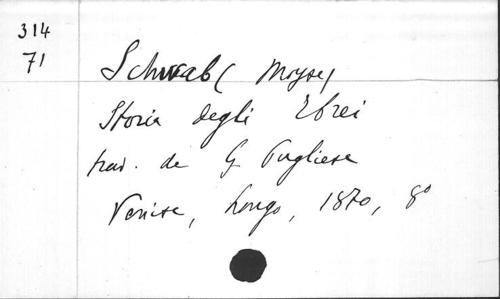 314
71
Schwab (Moyse)
Storia degli Ebrei
trad. de G Pugliese
Venise, Longo, 1870, 8º